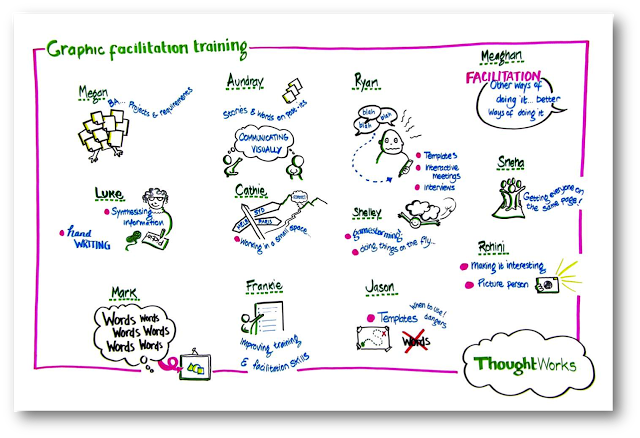 Graphic facilitation training
Megan
BA... Projects & requirements
Aundray
Stories & words on post-its
COMMUNICATING
VISUALLY
Ryan
blah
blah
blah
Templates
interactive
meetings
interviews
Meaghan
FACILITATION
Other ways of
doing it... better
ways of doing it
Luke
Synthesising
information
hand
WRITING
Cathie
SYD
working in a small space...
Shelley
gamestorming
doing things on the fly...
Sneha
Getting everyone on
the same page!
Rohini
Making it interesting
Picture person
Mark
Words Words
Words Words
Words Words
Frankie
Improving training
& facilitation skills
Jason
Templates
when to use/
dangers
Words
ThoughtWorks